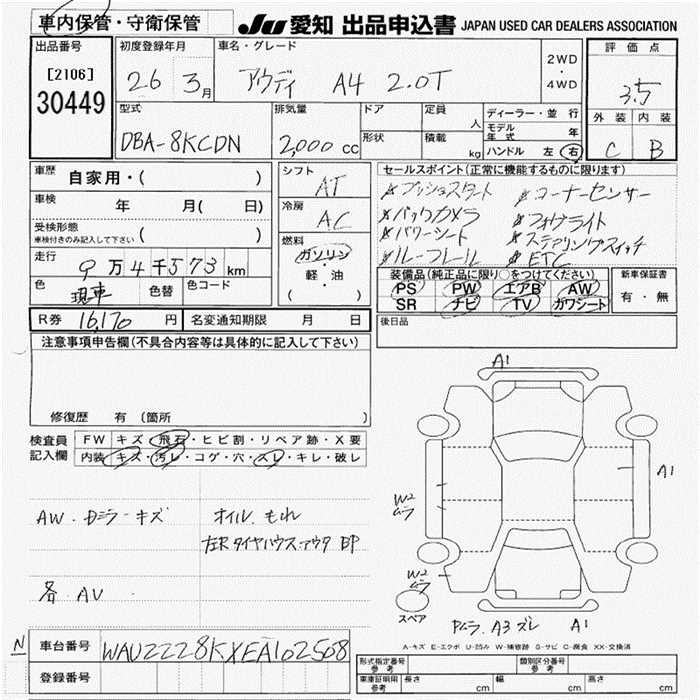 車内保管・守衛保管
JU 愛知 出品申込書 JAPAN USED CAR DEALERS ASSOCIATION
出品番号 初度登録年月 車名・グレード 評価点
[2106] 26 3月 アウディ A4 2.0T 2WD・4WD 3.5
30449
型式 排気量 ドア 定員 人 ディーラー・並行 外装 内装
DBA-8KCDN 2,000cc 形状 積載 kg モデル年式 年 C B
ハンドル 左 右
車歴 自家用・( ) シフト AT セールスポイント(正常に機能するものに限ります)
車検 年 月( 日) 冷房 AC
プッシュスタート コーナーセンサー
バックカメラ フォグライト
パワーシート ステアリングスイッチ
ルーフレール ETC
受検形態 車検付きのみ記入して下さい ( )
走行 9万4千573km 燃料 ガソリン・軽・油 ( )
装備品(純正品に限り○をつけてください) 新車保証書
PS PW エアB AW 有・無
SR ナビ TV ガワシート
色 現車 色替 色コード
R券 16,170円 名変通知期限 月 日 後日品
注意事項申告欄(不具合内容等は具体的に記入して下さい)
修復歴 有 (箇所
検査員記入欄 FW キズ・飛石・ヒビ割・リペア跡・X要
内装 キズ・汚レ・コゲ・穴・スレ・キレ・破レ
A1
A1
W2 ムラ
W2 ムラ
スペア
Pムラ、A3 ズレ A1
AW・Dミラーキズ オイルもれ
左RタイヤハウスアウタBP
各AU
A-キズ E-エクボ U-凹み W-補修跡 S-サビ C-腐食 XX-交換済
N 車台番号 WAUZZZ8KXEA102508
登録番号
形式指定番号 参考 類別区分番号 参考
車庫証明用 参考 長さ cm 幅 cm 高さ cm